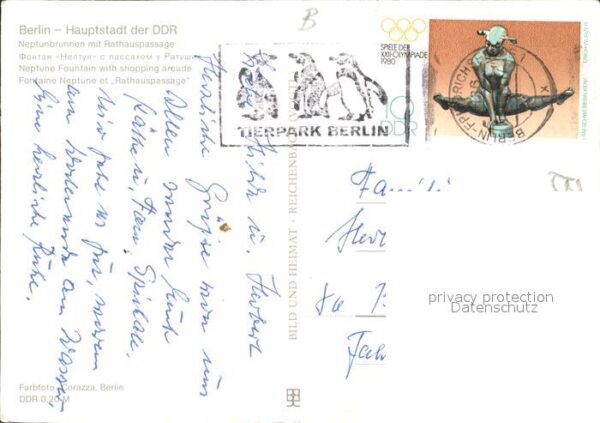 Berlin – Hauptstadt der DDR
Neptunbrunnen mit Rathauspassage
Фонтан «Нептун» с пассажом у Ратуши
Neptune Fountain with shopping arcade
Fontaine Neptune et „Rathauspassage“
B
SPIELE DER
XXII. OLYMPIADE
1980
10
DDR
TIERPARK BERLIN
BERLIN-FRIEDRICH
BILD UND HEIMAT · REICHENBACH
Liebe Hilde u. Herbert
Herzliche Grüße von uns
Allen sendet Euch
Käthe u. Fam.
Uns geht es gut, waren
am Wochenende am Wasser,
eine herrliche Ruhe.
Fami
Her
Fah
privacy protection
Datenschutz
Farbfoto: Corazza, Berlin
DDR 0,20 M